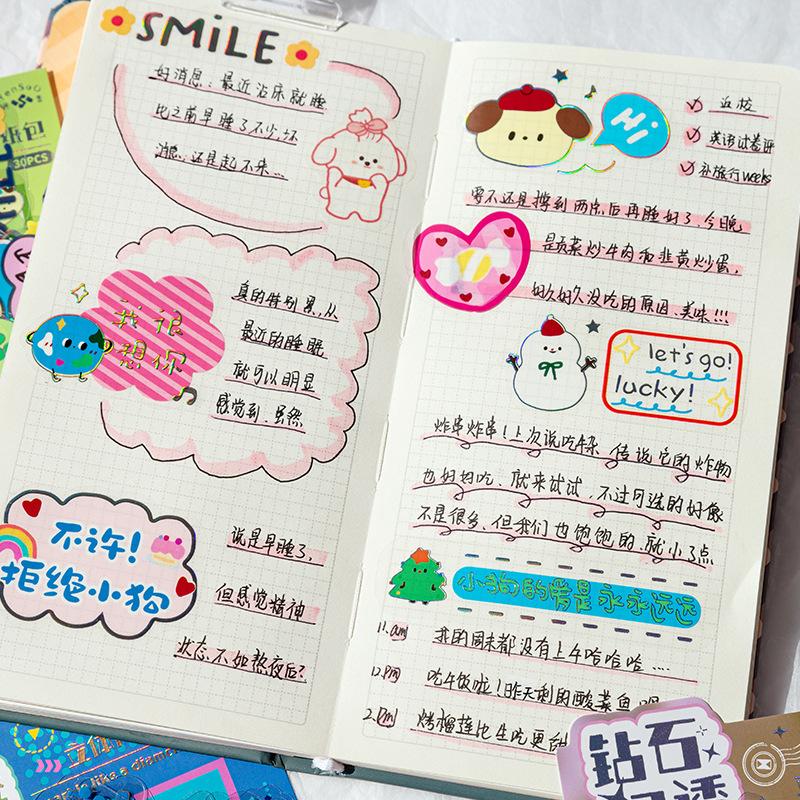 SMiLE
好消息：最近沾床就睡
比之前早睡了不少，坏
消息，还是起不来...
我很
想你
真的特别累，从
最近的睡眠
就可以明显
感觉到，虽然
不许！
拒绝小狗
说是早睡了，
但感觉精神
状态，不如熬夜后？
Hi
返校
英语试卷评
补旅行weeks
要不还是撑到两点后再睡好了，今晚，
是贡菜炒牛肉和韭黄炒蛋，
好久好久没吃的原因，美味!!!
let's go!
lucky!
炸串炸串！上次说吃牛杂，传说它的炸物
也好好吃，就来试试，不过可选的好像
不是很多，但我们也饱饱的，就小了点
小狗的爱是永永远远
11.am 我的周末都没有上午哈哈哈....
12.pm 吃午饭啦！昨天剩的酸菜鱼
2.pm 烤榴莲比生吃更甜
钻石
30PCS